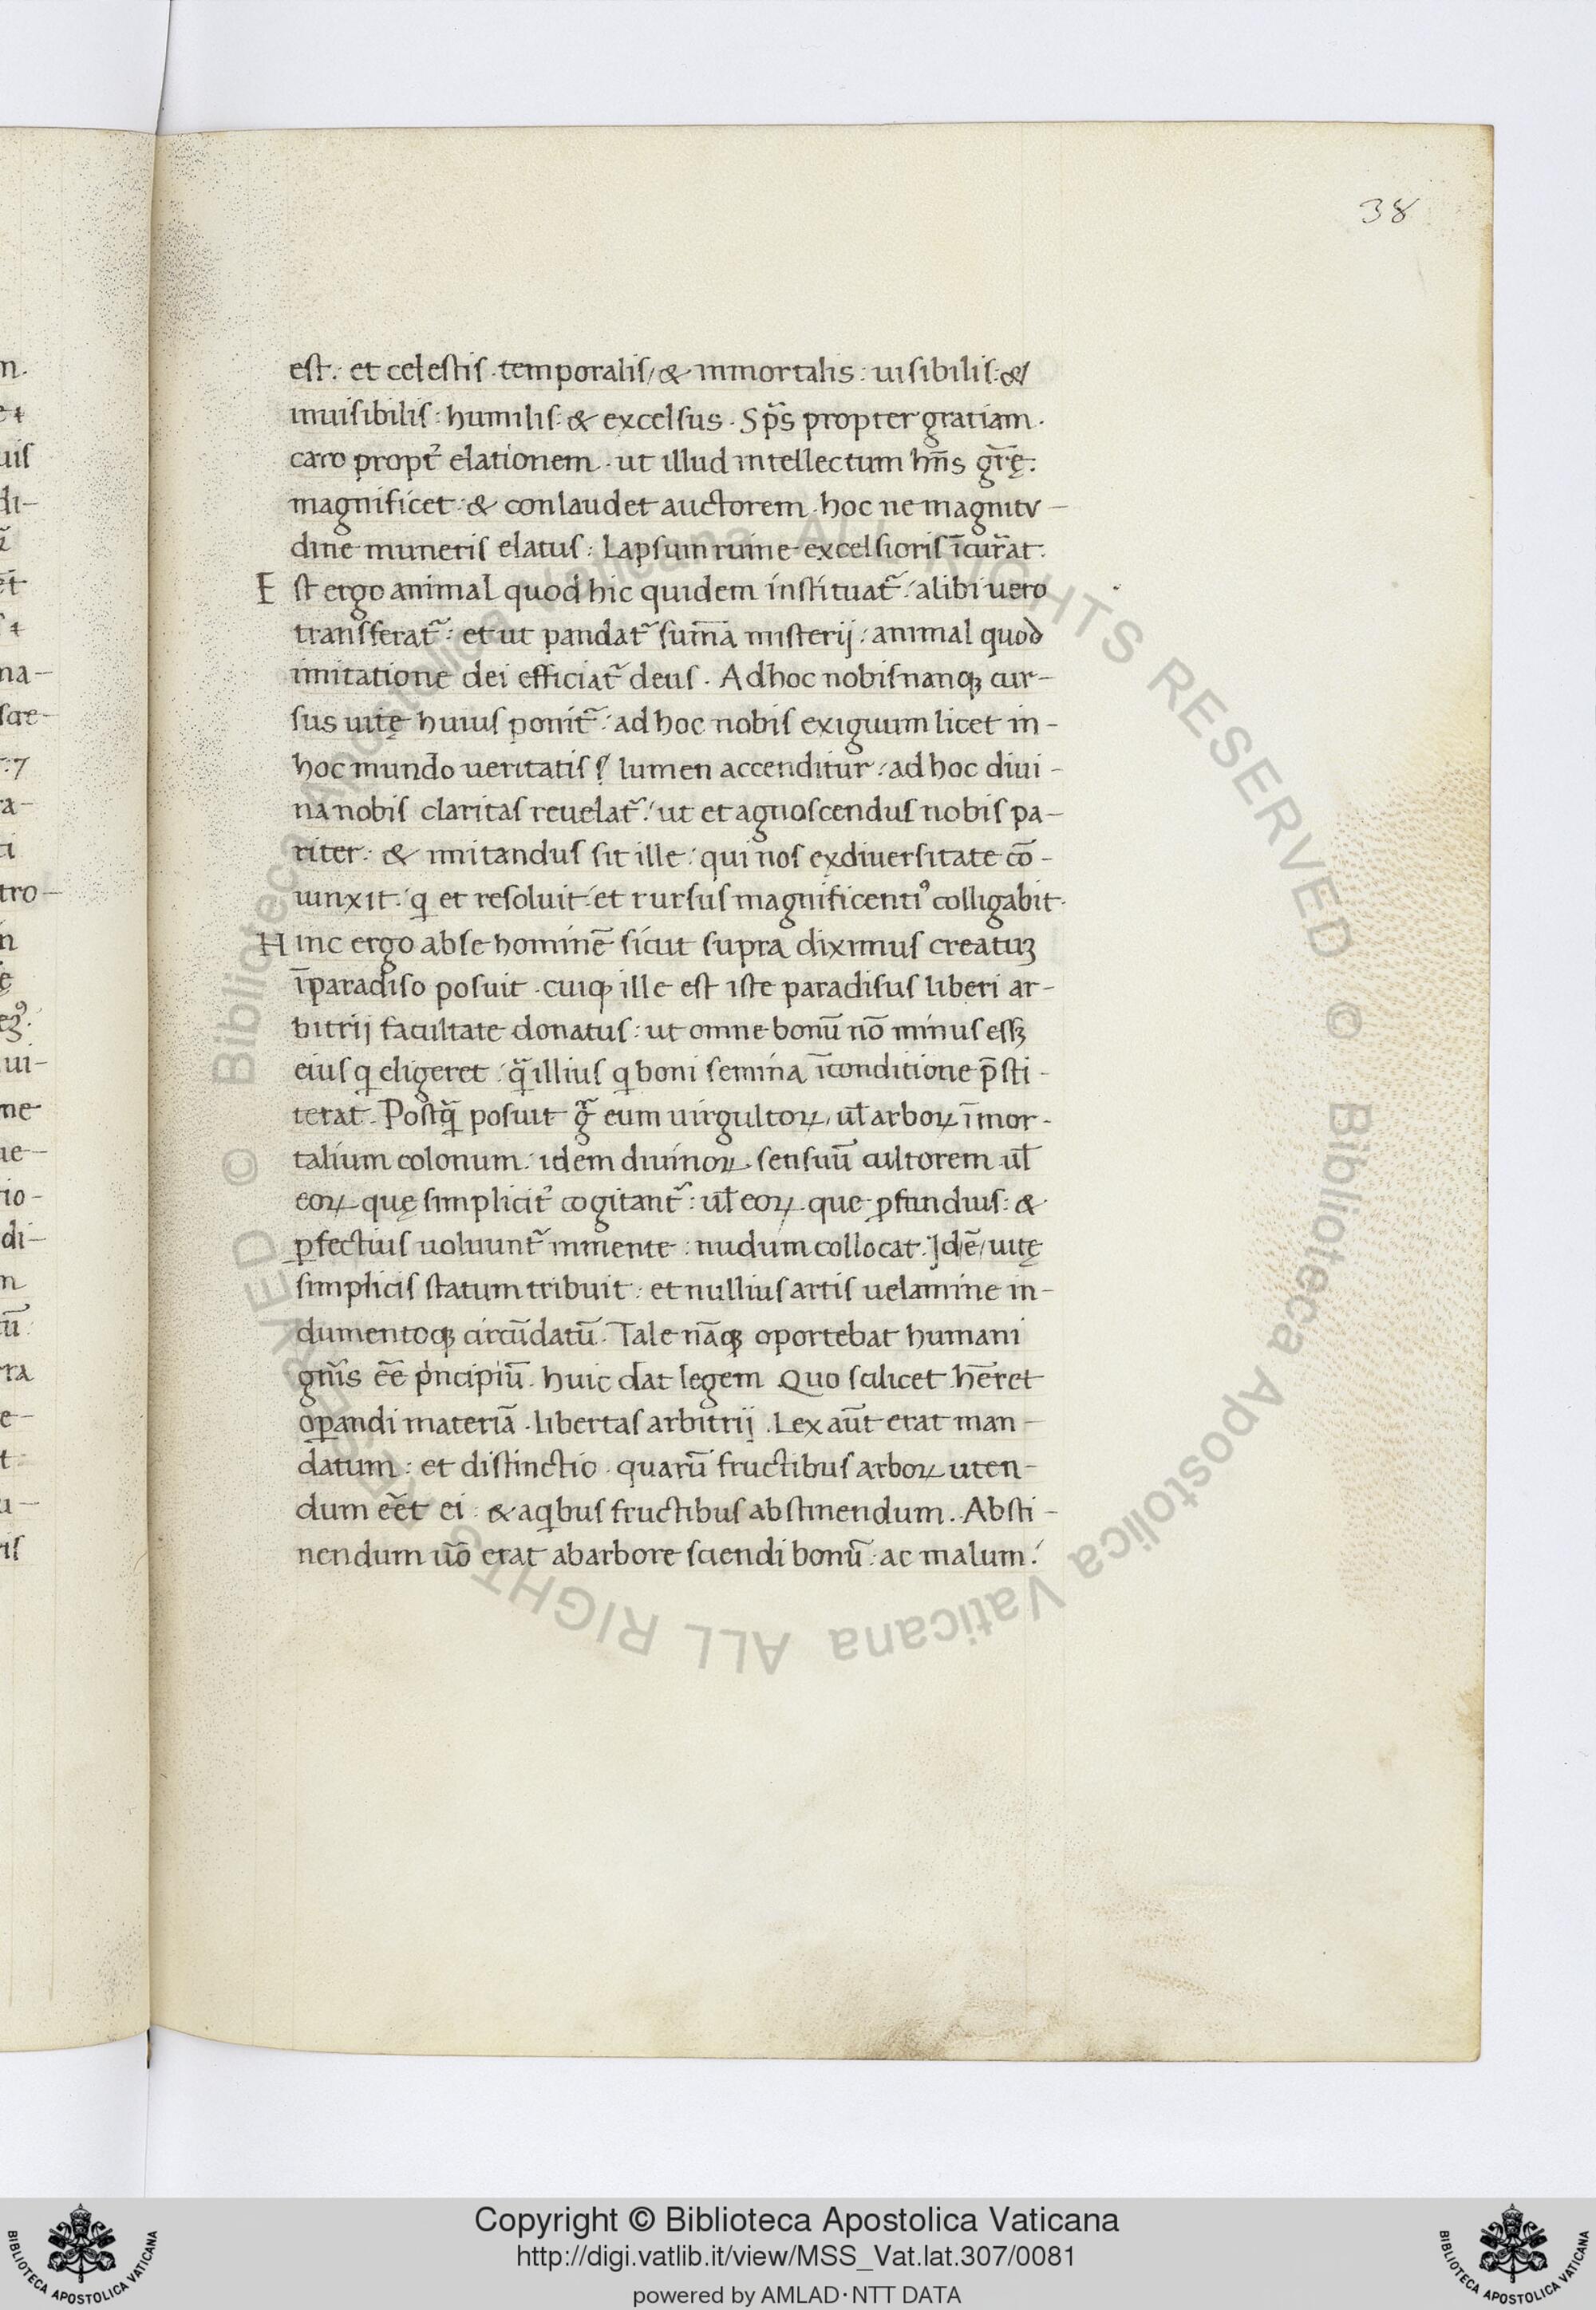 38
est: et celestis · temporalis / & inmortalis : uisibilis : &
inuisibilis : humilis : & excelsus · Sp̃s propter gratiam ·
caro propt̉ elationem · ut illud intellectum hñs gr̃ę :
magnificet : & conlaudet auctorem · hoc ne magnitu-
dine muneris elatus : Lapsum ruine excelsioris ĩcur̃at .
Est ergo animal quod hic quidem instituat̃ : alibi uero
transferat̃ : et ut pandat̃ sum̃a misterij : animal quod
imitatione dei efficiat̃ deus . Ad hoc nobis nanqꝫ cur-
sus uitę huius ponit̃ : ad hoc nobis exiguum licet in-
hoc mundo ueritatis lumen accenditur : ad hoc diui-
na nobis claritas reuelat̃ : ut et agnoscendus nobis pa-
riter : & imitandus sit ille : qui nos ex diuersitate cõ-
uinxit : q et resoluit : et rursus magnificentiꝰ colligabit .
Hinc ergo ab se hominẽ sicut supra diximus creatuꝫ
ĩ paradiso posuit · cuiqꝫ ille est iste paradisus liberi ar-
bitrij facultate donatus : ut omne bonũ nõ minus essꝫ
eius q eligeret : q̃ illius q boni semina ĩ conditione p̃sti-
terat . Postq̃ posuit g̃ eum uirgultoꝝ , ul̃ arboꝝ ĩmor-
talium colonum : idem diuinoꝝ sensuũ cultorem ul̃
eoꝝ quę simplicit̉ cogitant̃ : ul̃ eoꝝ que ꝓfundius : &
ꝑfectius uoluunt̃ in mente : nudum collocat . Idẽ / uitę
simplicis statum tribuit : et nullius artis uelamine in-
dumentoqꝫ circũdatũ . Tale nãqꝫ oportebat humani
gñis eẽ pͥncipiũ . huic dat legem Quo scilicet hẽret
oꝑandi materiã · libertas arbitrij . Lex aũt erat man-
datum : et distinctio · quarũ fructibus arboꝝ uten-
dum eẽt ei : & a qbus fructibus abstinendum . Absti-
nendum uõ erat ab arbore sciendi bonũ : ac malum :
n.
uis
di-
na-
a-
tro-
n
ui-
ne
ue-
io-
di-
m
ũ
ra
e-
t
is
© Biblioteca Apostolica Vaticana ALL RIGHTS RESERVED
© Biblioteca Apostolica Vaticana ALL RIGHTS RESERVED
Copyright © Biblioteca Apostolica Vaticana
http://digi.vatlib.it/view/MSS_Vat.lat.307/0081
powered by AMLAD·NTT DATA
BIBLIOTECA APOSTOLICA VATICANA
BIBLIOTECA APOSTOLICA VATICANA